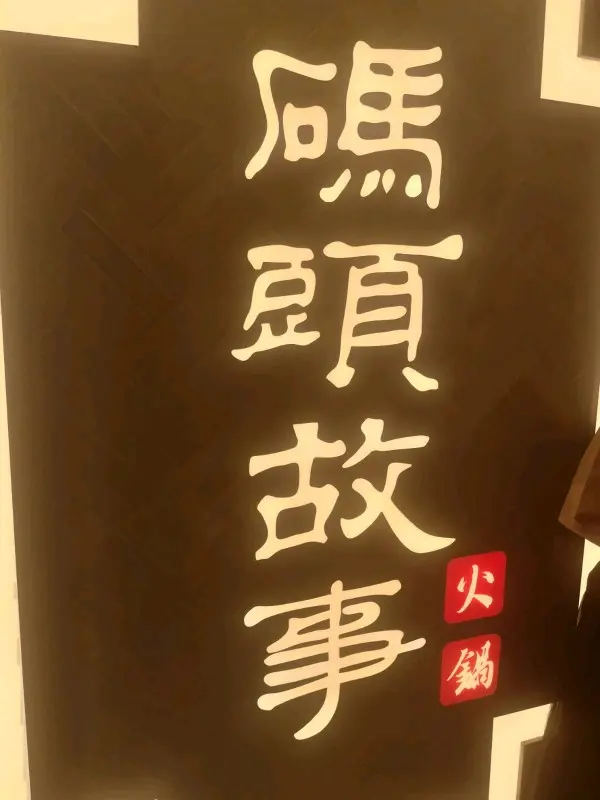 碼頭故事
火鍋